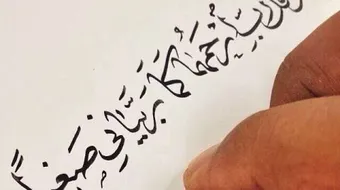 رَّبِّ ارْحَمْهُمَا كَمَا رَبَّيَانِي صَغِيرًا